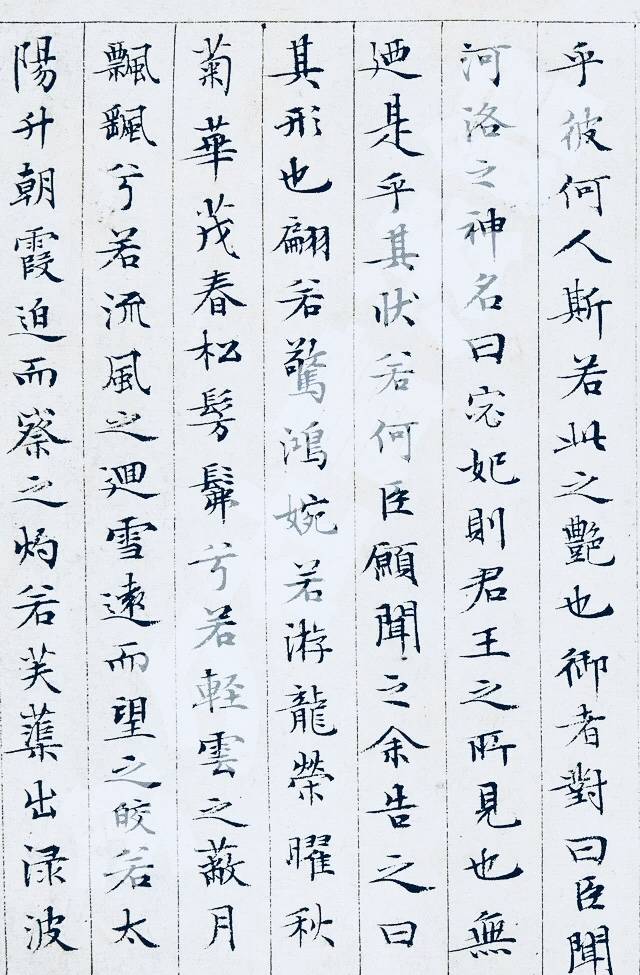 乎彼何人斯若此之艷也御者對曰臣聞
河洛之神名曰宓妃則君王之所見也無
迺是乎其狀若何臣願聞之余告之曰
其形也翩若驚鴻婉若游龍榮曜秋
菊華茂春松髣髴兮若輕雲之蔽月
飄颻兮若流風之迴雪遠而望之皎若太
陽升朝霞迫而察之灼若芙蕖出淥波